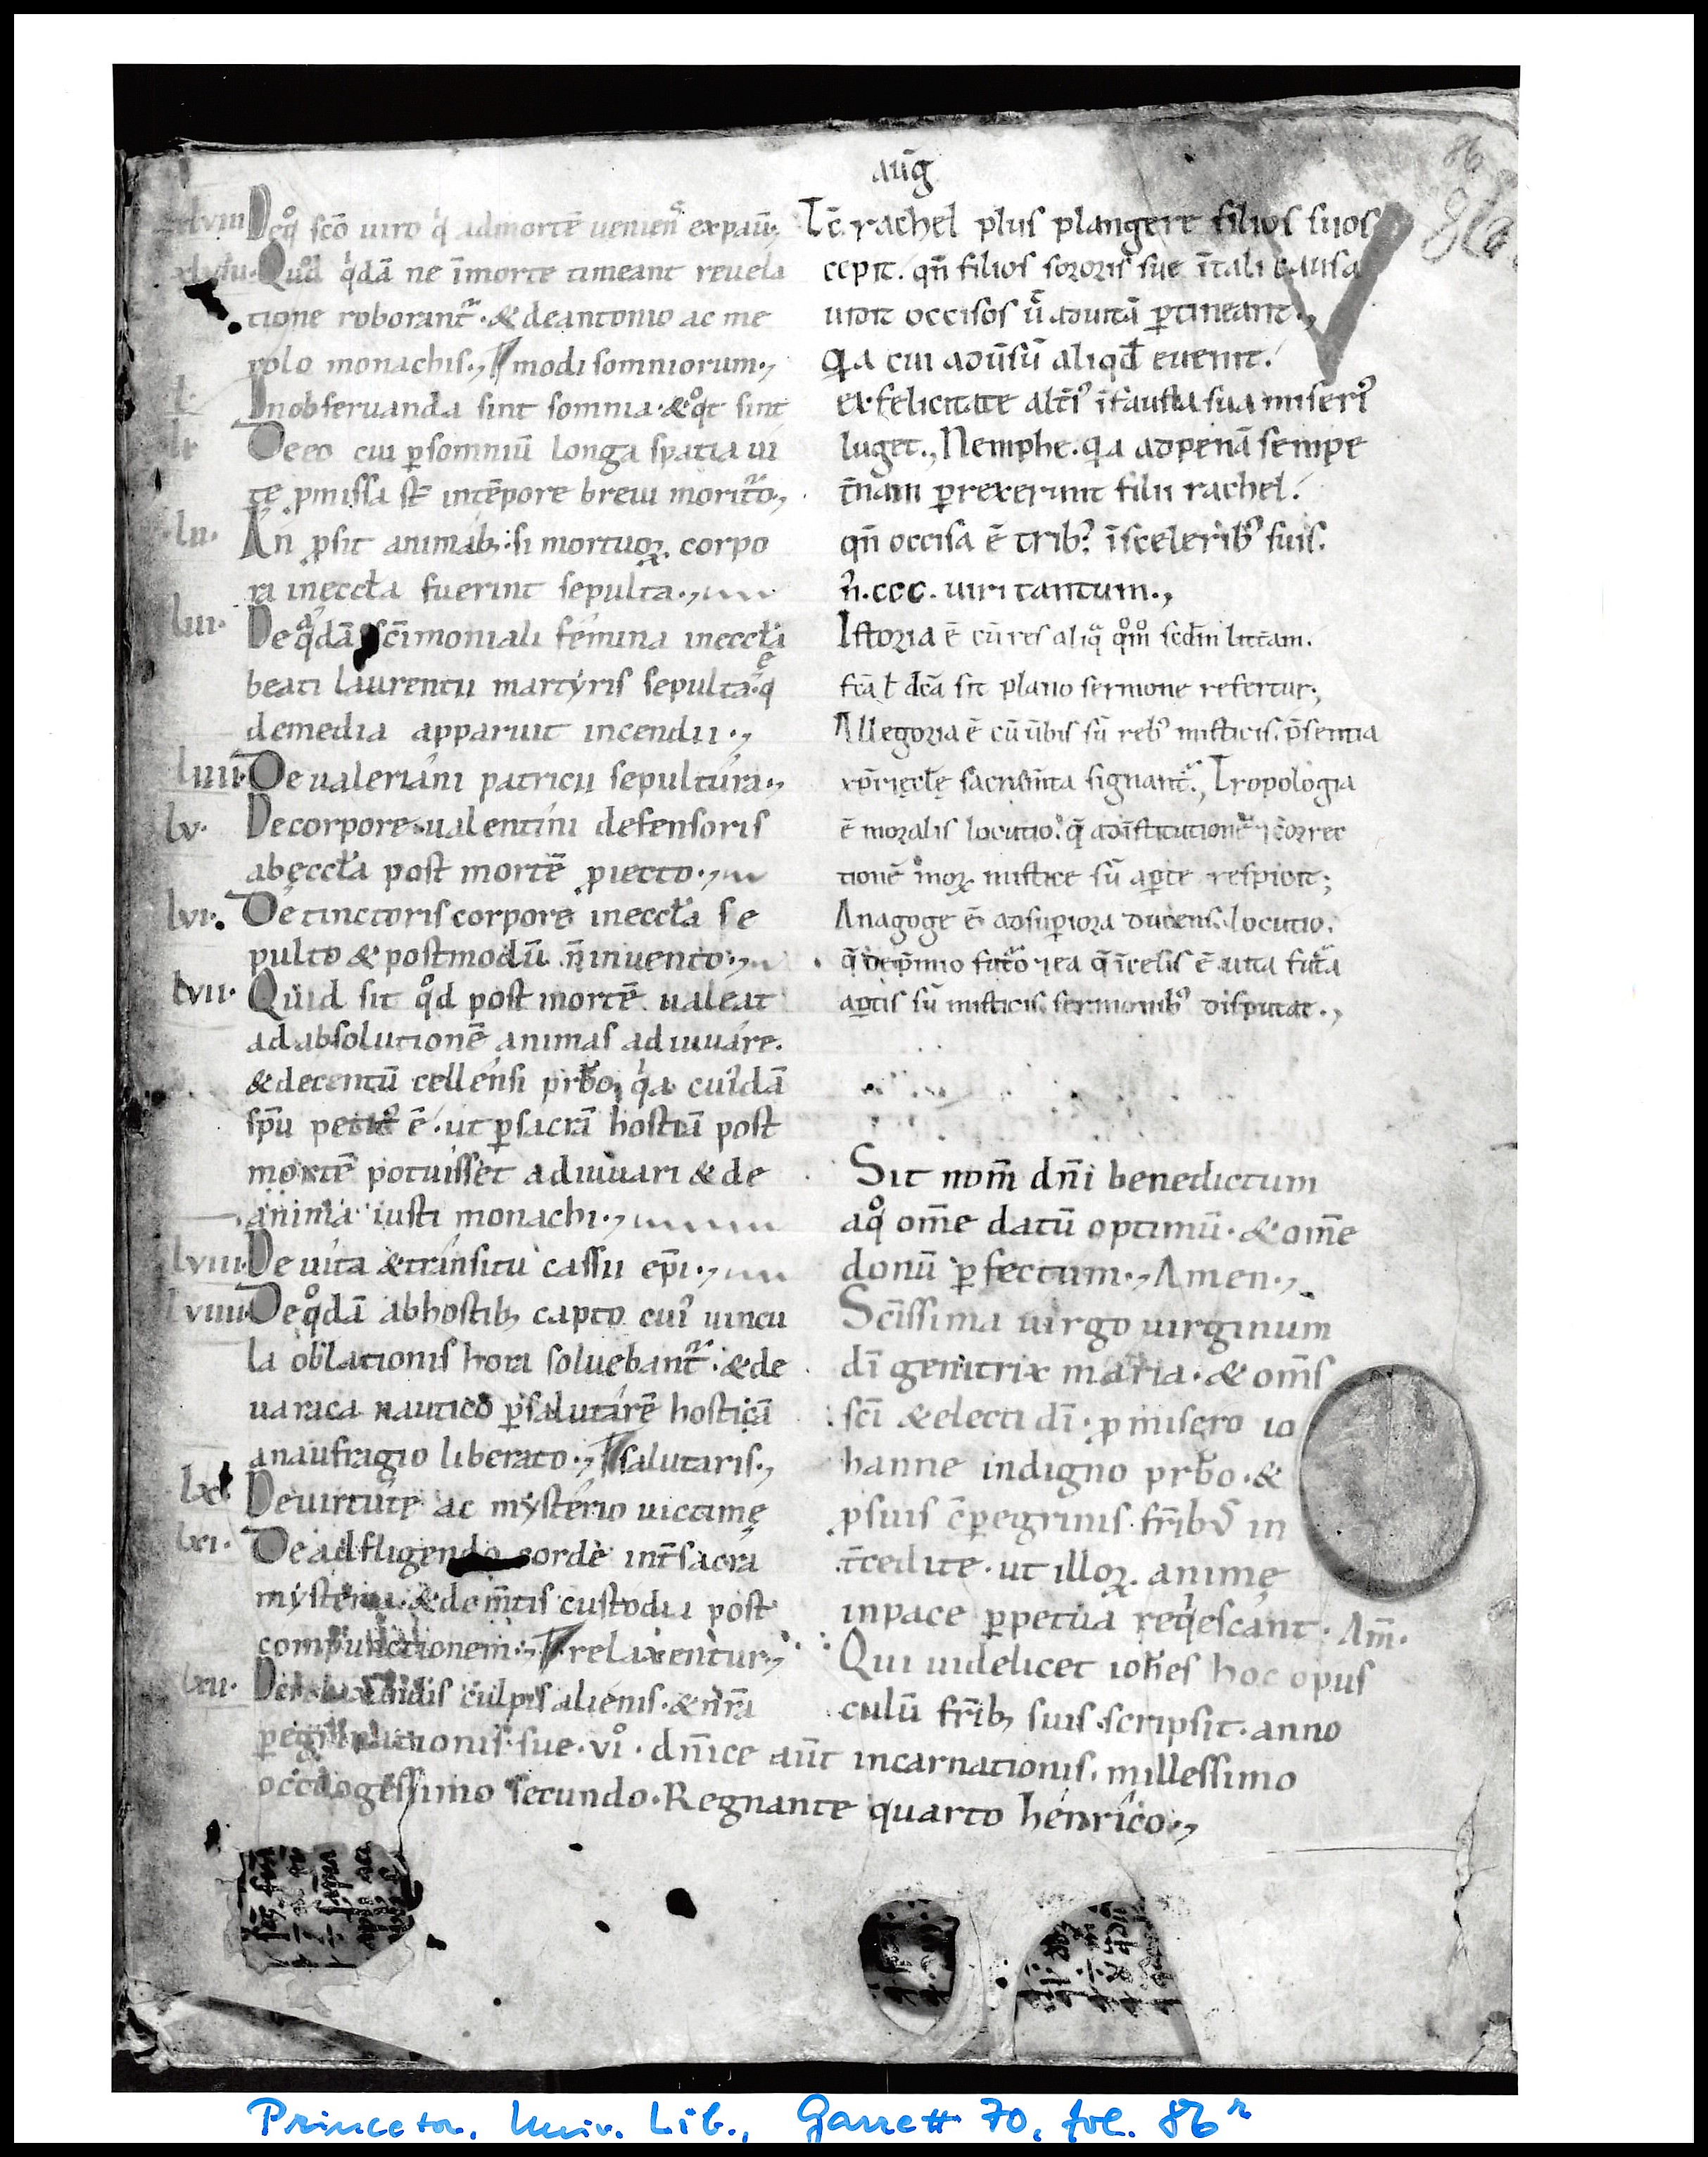 xlviii Deq̊ scō uiro q̓ admortē ueniens expau̅.,
xlviiii. Quod q̓dā ne īmorte timeant reuela
tione roborant᷑. & deantonio ac me
rolo monachis., modi somniorum.,
l. Inobseruanda sint somnia. & q̊t sint
li Deeo cui ꝑsomniū longa spatia ui
tę ꝓmissa st̄ intēpore breui morit᷑o.,
lii. An ꝓsit animab; si mortuoꝝ corpo
ra inęcctɫa fuerint sepulta.,
liii. Deq̓dā scīmoniali femina inęccɫa
beati laurentii martyris sepulta. q̄
demedia apparuit incendii.,
liiii. De ualeriani patricii sepultura.,
lv. Decorpore ualentini defensoris
abęccɫa post mortē ꝓiecto.,
lvi. De tinctoris corpore inęccɫa se
pulto & postmodū n̄ inuento.,
lvii. Quid sit q̊d post mortē ualeat
adabsolutionē animas adiuuare.
& decentū cellensi prƀo, q̓a cuidā
spū petit᷒ ē. ut ꝑsacrā hostiā post
mortē potuisset adiuuari & de
anima iusti monachi.,
lviii. De uita & transitu cassii epī.,
lviiii De q̊dā abhostib; capto cui᷒ uincu
la oblationis hora soluebant᷑. & de
uaraca nautico ꝑsalutarē hostiā
anaufragio liberato., salutaris.,
lx Deuirtute ac mysterio uictimę
lxi. De adfligendo corde int̄sacra
mysteria. & de m̄tis custodia post
compunctionem., relaxentur.,
lxii. De culpis alienis. & nr̄a
aūg
Tc̄ rachel plus plangere filios suos
cepit. qn̄ filios sororis sue ītali causa
uidit occisos ū aduitā ꝑtineant.,
Q̓a cui aduersū aliqđ euenit.
ex felicitate alt̄i᷒ īfausta sua miseri᷒
luget., Nemphe. q̓a adpenā sempe
t̄nam ꝑrexerunt filii rachel.
qn̄ occisa ē trib᷒ īsceleribꝰ suis.
n̄. ccc. uiri tantum.,
Istoria ē cū res aliq̄ q̊m̊ scđm litt̄am.
fcā ɫ dc̄a sit plano sermone refertur;
Allegoria ē cū ūbis sū rebꝰ misticis. p̄sentia
xp̄i ęccɫę sacram̄ta signant᷑., Tropologia
ē moralis locutio. q̄ adīstitutionē ⁊ correc
tionē moꝝ mistice sū aꝑte respicit;
Anagoge ē adsuꝑiora ducens locutio.
q̄ dep̄mio fut᷑o ⁊ ea q̄ īcelis ē uita fut᷑a
aꝑtis sū misticis sermonibꝰ disputat.,
Sit nom̄ dn̄i benedictum
aq̊ om̄e datū optimū. & om̄e
donū ꝑfectum., Amen.,
Scīssima uirgo uirginum
dī genitrix maria. & om̄s
scī & electi dī. ꝓ misero io
hanne indigno prƀo. &
ꝓsuis c̄ꝑegrinis fr̄ibꝰ in
t̄cedite. ut illoꝝ animę
inpace ꝑpetua req̓escant. Am̄.
Qui uidelicet ioħes hoc opus
culū fr̄ib; suis scripsit. anno
ꝑegrinationis sue. vi̊. dn̄ice aūt incarnationis. millessimo
octogessimo secundo. Regnante quarto henrico.,
86
86
Princeton. Univ. Lib., Garrett 70, fol. 86r